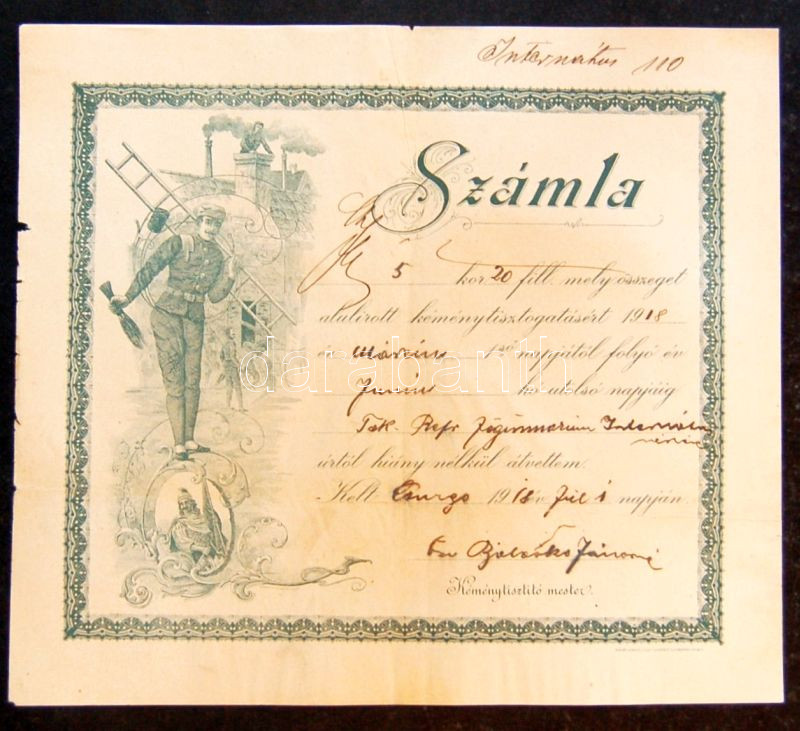 Internátus 110
Számla
5 kor. 20 fill. mely összeget
alulirott kéménytisztogatásért 1918
év 1ső napjától folyó év
Junius hó utolsó napjáig
Tek. Refr. Főgimnázium
úrtól hiány nélkül átvettem.
Kelt Csurgó 1918 év Juli 1 napján
Jánosné
Kéménytisztitó mester.
darabanth